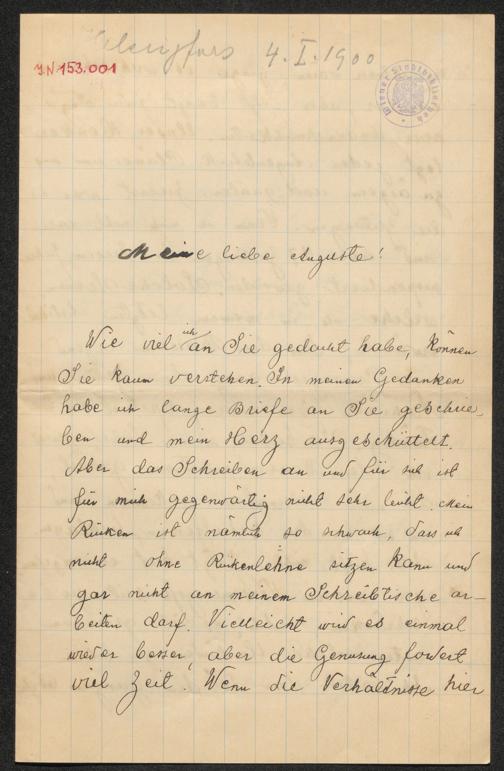 Helsingfors 4. I. 1900
JN 153.001
Wiener Stadtbibliothek
Meine liebe Auguste!
Wie viel ich an Sie gedacht habe, können
Sie kaum verstehen. In meinen Gedanken
habe ich lange Briefe an Sie geschrie-
ben und mein Herz ausgeschüttelt.
Aber das Schreiben an und für sich ist
für mich gegenwärtig nicht sehr leicht. Mein
Rücken ist nämlich so schwach, dass ich
nicht ohne Rückenlehne sitzen kann und
gar nicht an meinem Schreibtische ar-
beiten darf. Vielleicht wird es einmal
wieder besser, aber die Genusung fordert
viel Zeit. Wenn die Verhältnisse hier